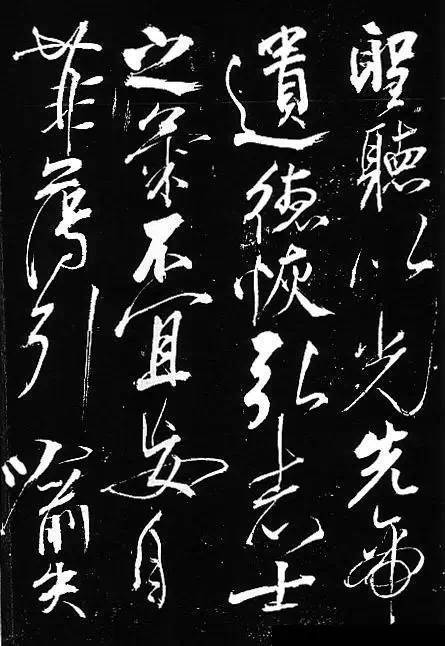 聖聽以光先帝
遺德恢弘志士
之氣不宜妄自
菲薄引喻失